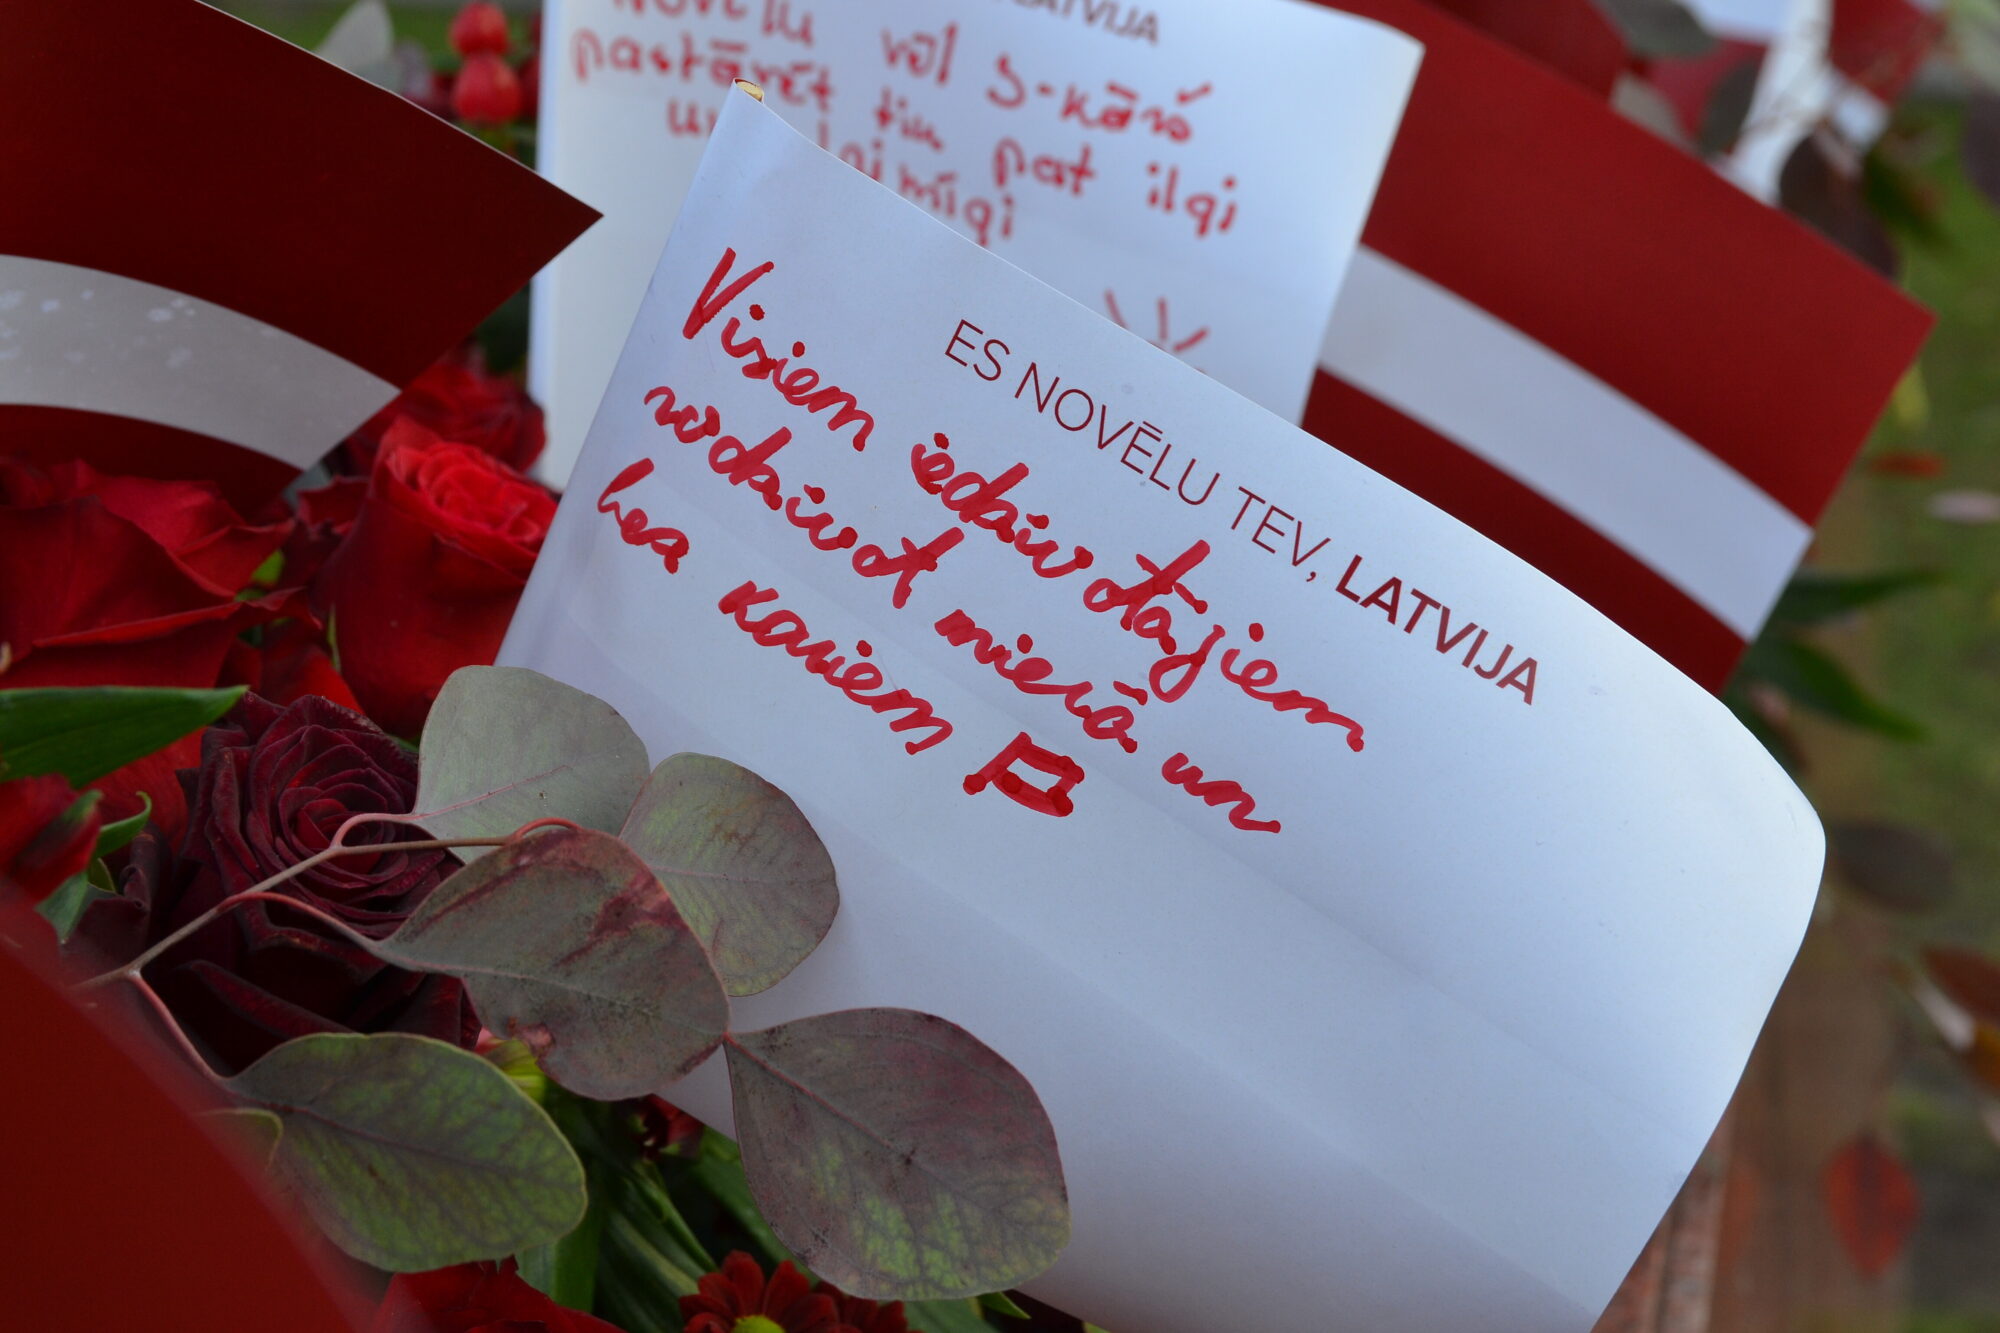 LATVIJA
Novēlu vēl 3-kārš
pastāvēt tik pat ilgi
un laimīgi
ES NOVĒLU TEV, LATVIJA
Visiem iedzīvotājiem
nodzīvot mierā un
bez kariem